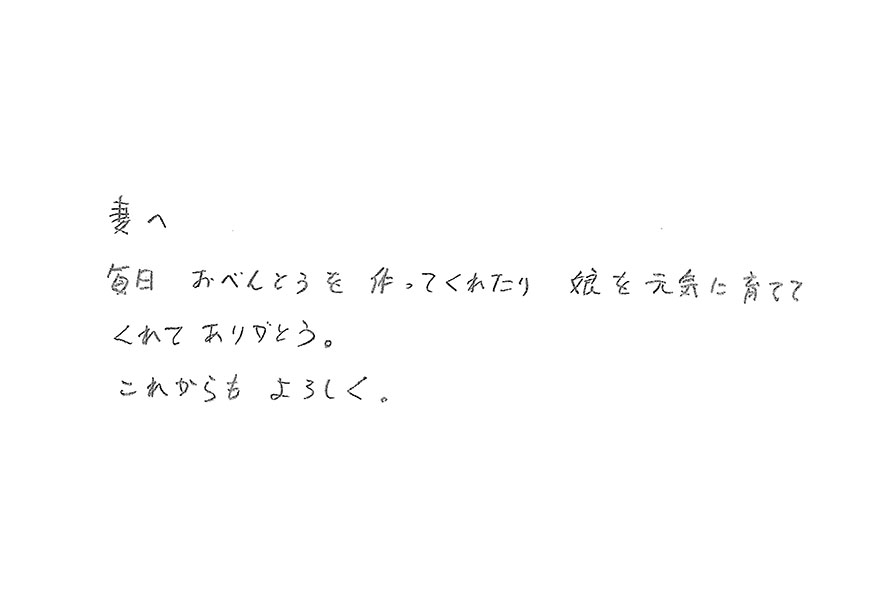 妻へ
毎日 おべんとうを 作ってくれたり 娘を元気に育てて
くれて ありがとう。
これからも よろしく。